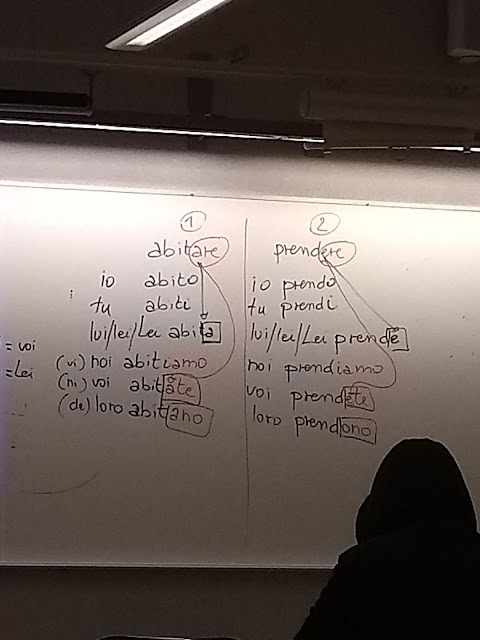 1
abitare
io abito
tu abiti
lui/lei/Lei abita
(vi) noi abitiamo
(ni) voi abitate
(de) loro abitano
= voi
= Lei
2
prendere
io prendo
tu prendi
lui/lei/Lei prende
noi prendiamo
voi prendete
loro prendono